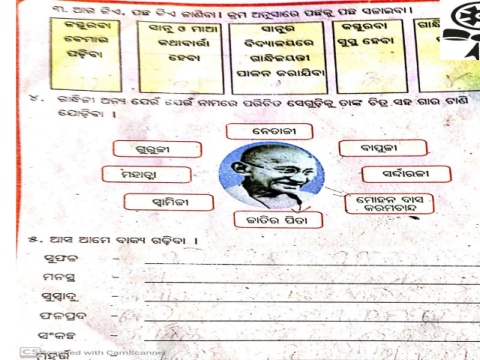 ୩. ଆଗ କିଏ, ପଛ କିଏ ଜାଣିବା। କ୍ରମ ଅନୁସାରେ ପଛକୁ ପଛ ସଜାଇବା।
କସ୍ତୁରବା
ବେମାର
ପଡ଼ିବା
ସାନ୍ତୁ ଓ ମାଆ
କଥାବାର୍ତ୍ତା
ହେବା
ସାନ୍ତୁର
ବିଦ୍ୟାଳୟରେ
ଗାନ୍ଧିଜୟନ୍ତୀ
ପାଳନ କରାଯିବା
କସ୍ତୁରବା
ସୁସ୍ଥ ହେବା
୪. ଗାନ୍ଧିଜୀ ଅନ୍ୟ ଯେଉଁ ଯେଉଁ ନାମରେ ପରିଚିତ ସେଗୁଡ଼ିକୁ ତାଙ୍କ ଚିତ୍ର ସହ ଗାର ଟାଣି
ଯୋଡ଼ିବା ।
ନେତାଜୀ
ଗୁରୁଜୀ
ବାପୁଜୀ
ମହାତ୍ମା
ସର୍ଦ୍ଦାରଜୀ
ସ୍ୱାମିଜୀ
ମୋହନ ଦାସ
କରମଚାନ୍ଦ
ଜାତିର ପିତା
୫. ଆସ ଆମେ ବାକ୍ୟ ଗଢ଼ିବା ।
ସୁଫଳ -
ମନସ୍ଥ -
ସୁସ୍ୱାଦୁ -
ଫଳପ୍ରଦ -
ସଂକଳ୍ପ -
CS Scanned with CamScanner